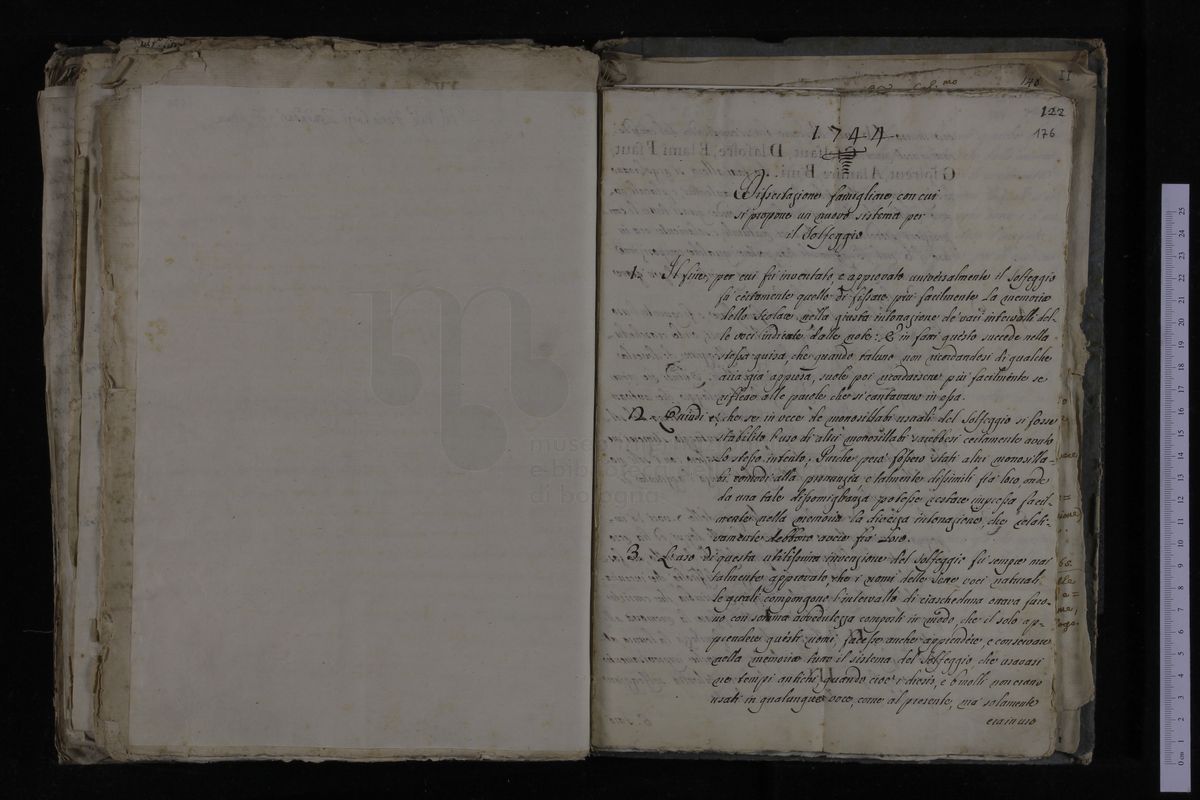 122
176
1744
Dissertazione famigliare, con cui
si propone un nuovo sistema per
il Solfeggio
1. Il fine, per cui fu inventato, e approvato universalmente il Solfeggio
fu certamente quello di fissare più facilmente la memoria
dello Scolare nella giusta intonazione de' varj intervalli del-
le voci indicate dalle note: E in fatti questo succede nella
stessa guisa, che quando taluno non ricordandosi di qualche
aria già appresa, suole poi ricordarsene più facilmente se
riflette alle parole che si cantavano in essa.
2. Quindi è, che se in vece de monosillabi usuali del Solfeggio si fosse
stabilito l'uso di altri monosillabi sarebbesi certamente avuto
lo stesso intento; Purche però fossero stati altri monosilla-
bi comodi alla pronunzia e talmente dissimili fra loro, onde
da una tale dissomiglianza potesse restare impressa facil-
mente nella memoria la diversa intonazione, che relati-
vamente debbono avere fra loro.
3. L'uso di questa utilissima invenzione del Solfeggio fu sempre mai
talmente approvato, che i nomi delle sette voci naturali
le quali compongono l'intervallo di ciascheduna ottava furo-
no con somma avvedutezza composti in modo, che il solo ap-
prendere questi nomi, facesse anche apprendere, e conservare
nella memoria tutto il sistema del Solfeggio che usavasi
ne tempi antichi quando cioè i diesis, e b molli non erano
usati in qualunque voce, come al presente, ma solamente
era in uso
museo
e biblioteca
di bologna